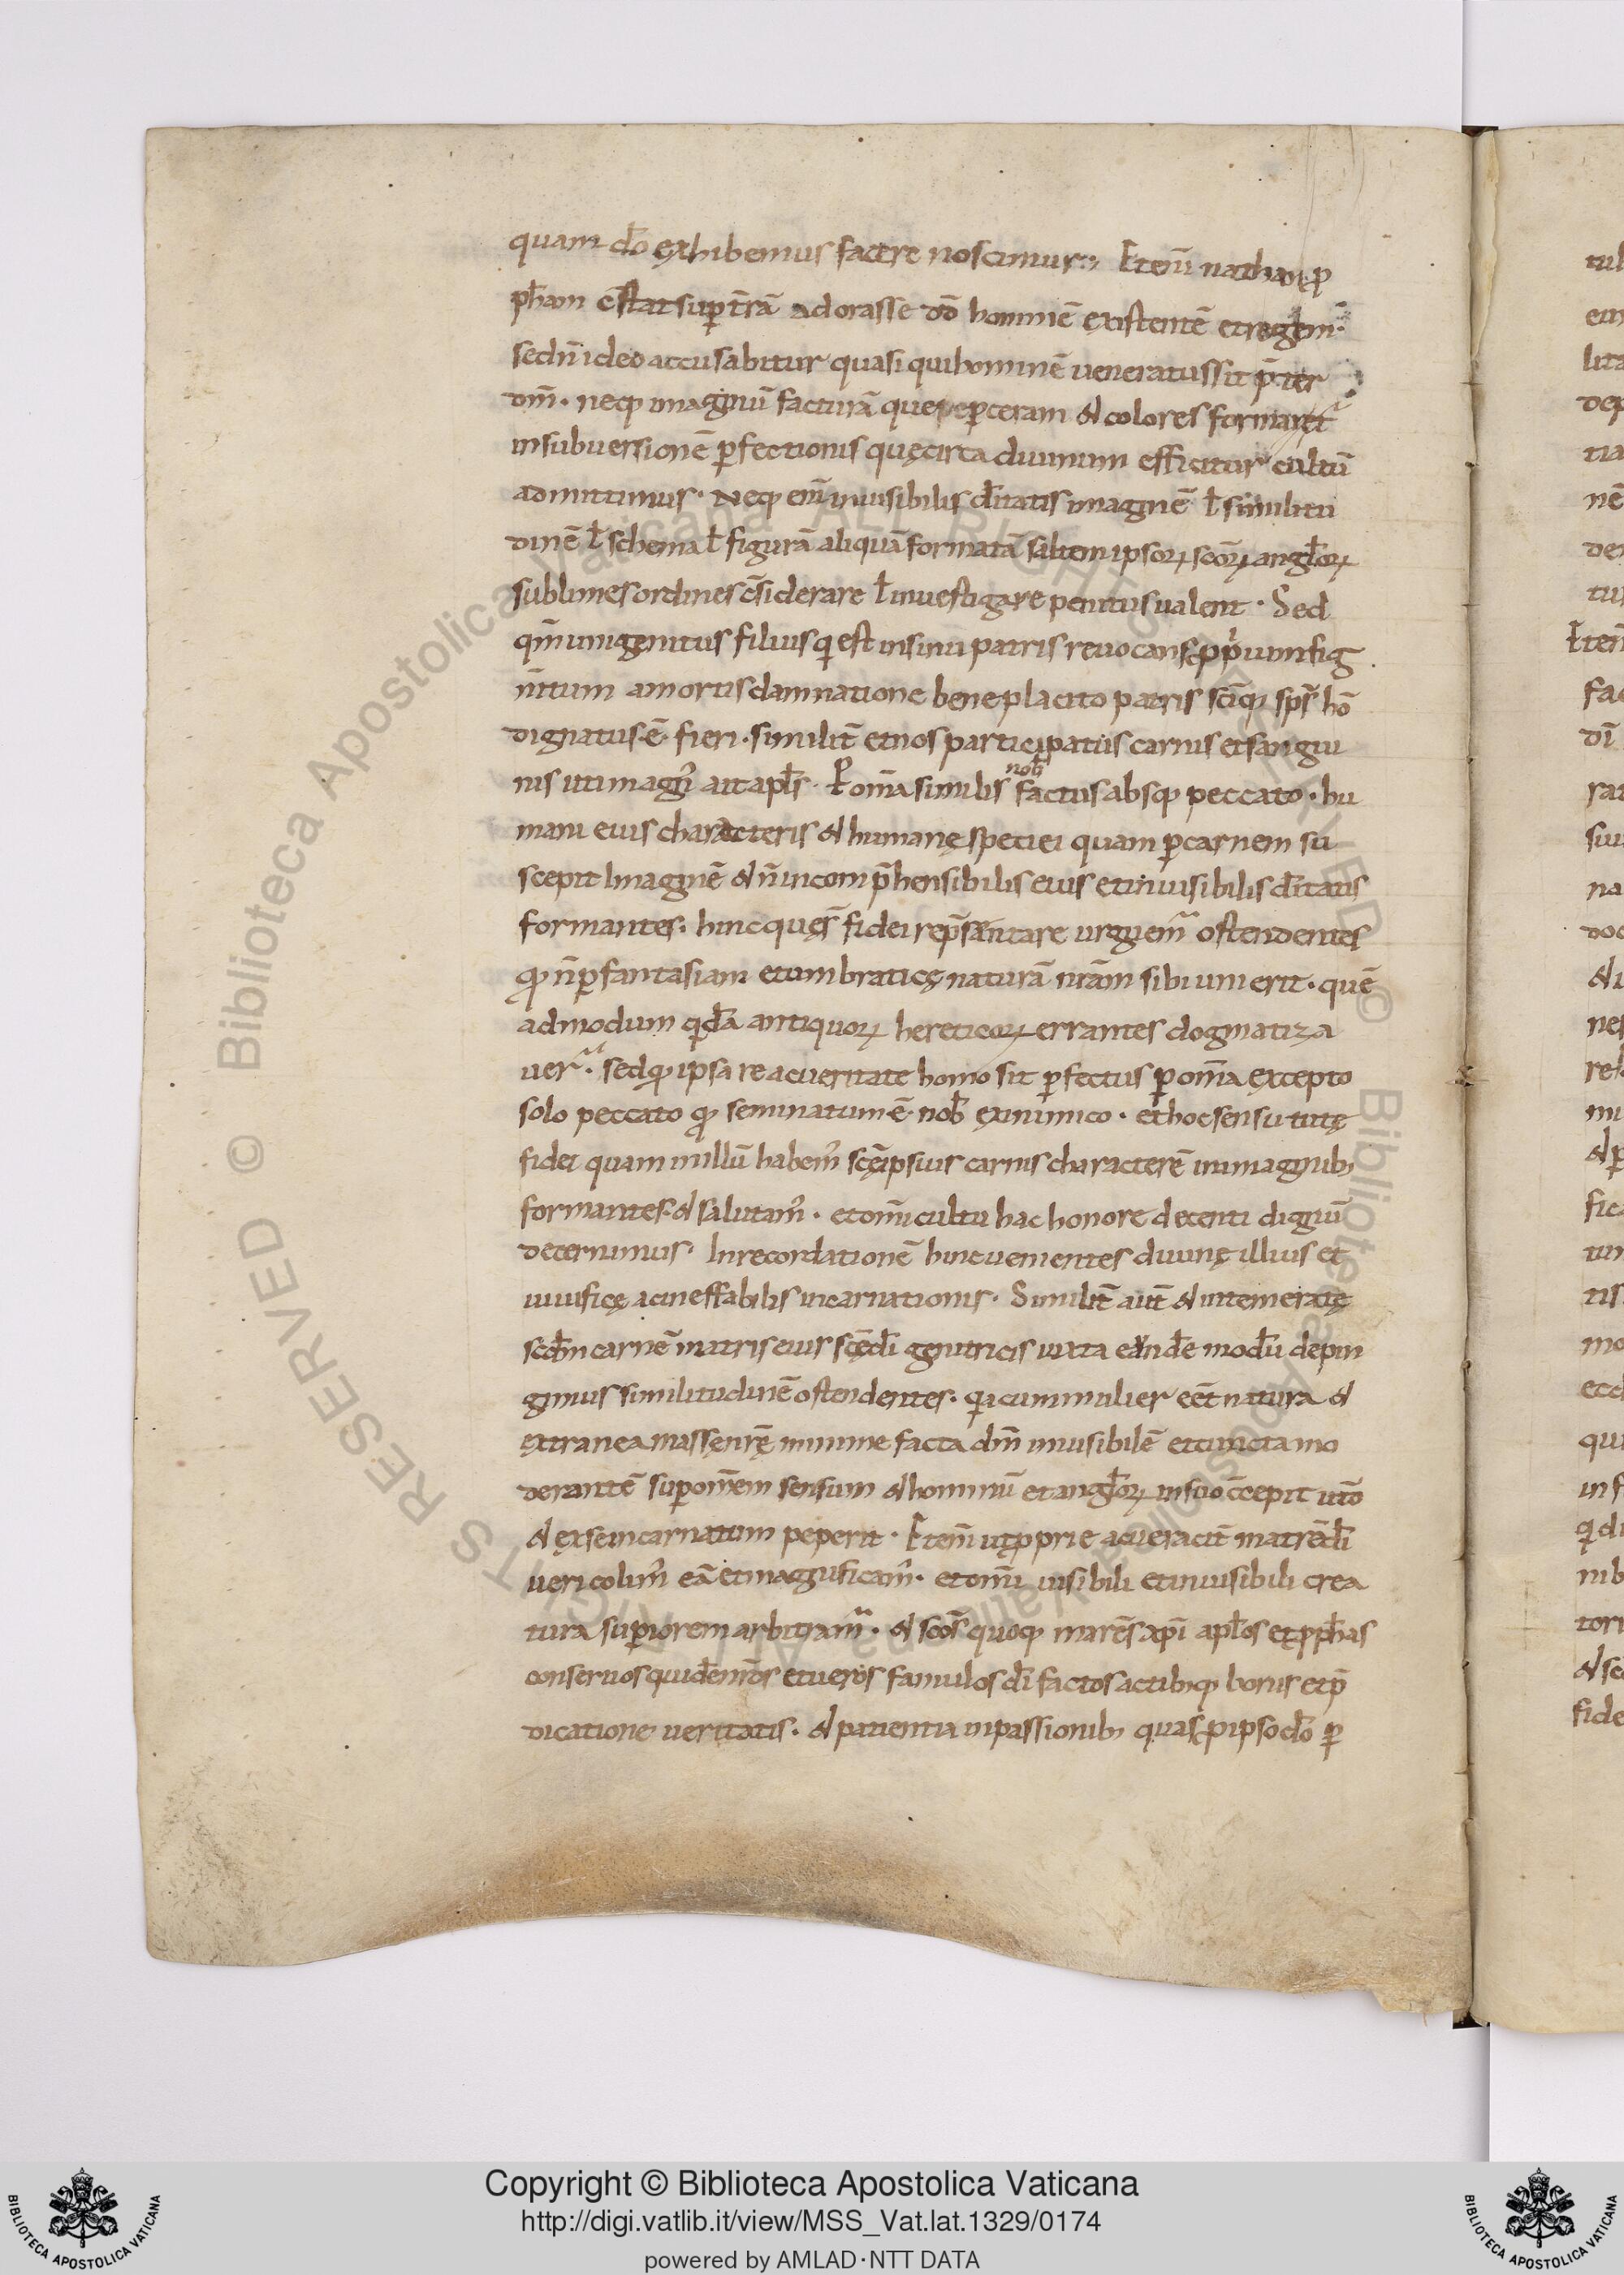 quam dō exhibemus facere noscimur; Etenī nathan, ꝓ
ph̄am c̄stat sup̱ t̄rā adorasse d̄d hominē existentē et regem.
sed n̄ ideo accusabitur quasi qui hominē ueneratus sit p̄ter
dm̄. neq; imaginū facturā que p̱ ceram & colores formaret
in subuersionē p̱fectionis quę circa diuinum efficitur cultū
admittimus. Neq; enī inuisibilis dēitatis imaginē ł similitu
dinē ł schema ł figurā aliquā formatā saltem ipsoꝝ scōꝝ angłoꝝ
sublimes ordines c̄siderare ł inuestigare penitus ualent. Sed
qm̄ unigenitus filius qi est in sinu patris reuocans ꝓprium fig
m̄tum a mortis damnatione beneplacito patris scīq; sp̄s hō
dignatus ē fieri. similit̄ et nos participatus carnis et sangui
nis ut magn' ait apłs. P om̄a similis nob̄ factus absq; peccato. hu
mani eius characteris & humanę speciei quam p̱ carnem su
scepit Imaginē & n̄ incomp̄hensibilis eius et inuisibilis dēitatis
formantes. hinc quęs fidei rep̄sentare urguem̄ ostendentes
qď n̄ p̱ fantasiam et umbraticę naturā nrām sibi unierit. quē
admodum qdā antiquoꝝ hereticoꝝ errantes dogmatiza
uer̄. sed qď ipsa re ac ueritate homo sit p̱fectus p̱ om̄a excepto
solo peccato qď seminatum ē nob̄ ex inimico. et hoc sensu tutę
fidei quam in illū habem' scę ipsius carnis characterē in imaginib;
formantes & salutam'. et omī cultu hac honore decenti dignū
decernimus. In recordationē hinc uenientes diuinę illius et
uiuificę ac ineffabilis incarnationis. Similit̄ aut̄ & intemeratę
scdm̄ carnē matris eius scę dī genitricis iuxta eandē modū depin
gimus similitudinē ostendentes. qia cum mulier eēt natura &
extranea massę nrę minime facta dm̄ inuisibilē et cuncta mo
derantē sup̱ om̄em sensum & hominū et angłoꝝ in suo c̄cepit utō
& ex se incarnatum peperit. Etenī ut ꝓprie ac ueracit̄ matrē dī
ueri colim' eā et magnificam'. et omī uisibili et inuisibili crea
tura sup̱iorem arbitram̄. & scōs quoq; mar̄es xp̄i apłos et ꝓph̄as
conseruos quidē nrōs et ueros famulos dī factos actibusq; bonis et p̄
dicatione ueritatis. & patientia in passionib; quas ꝓ ipso dō p̱
Copyright © Biblioteca Apostolica Vaticana
http://digi.vatlib.it/view/MSS_Vat.lat.1329/0174
powered by AMLAD·NTT DATA